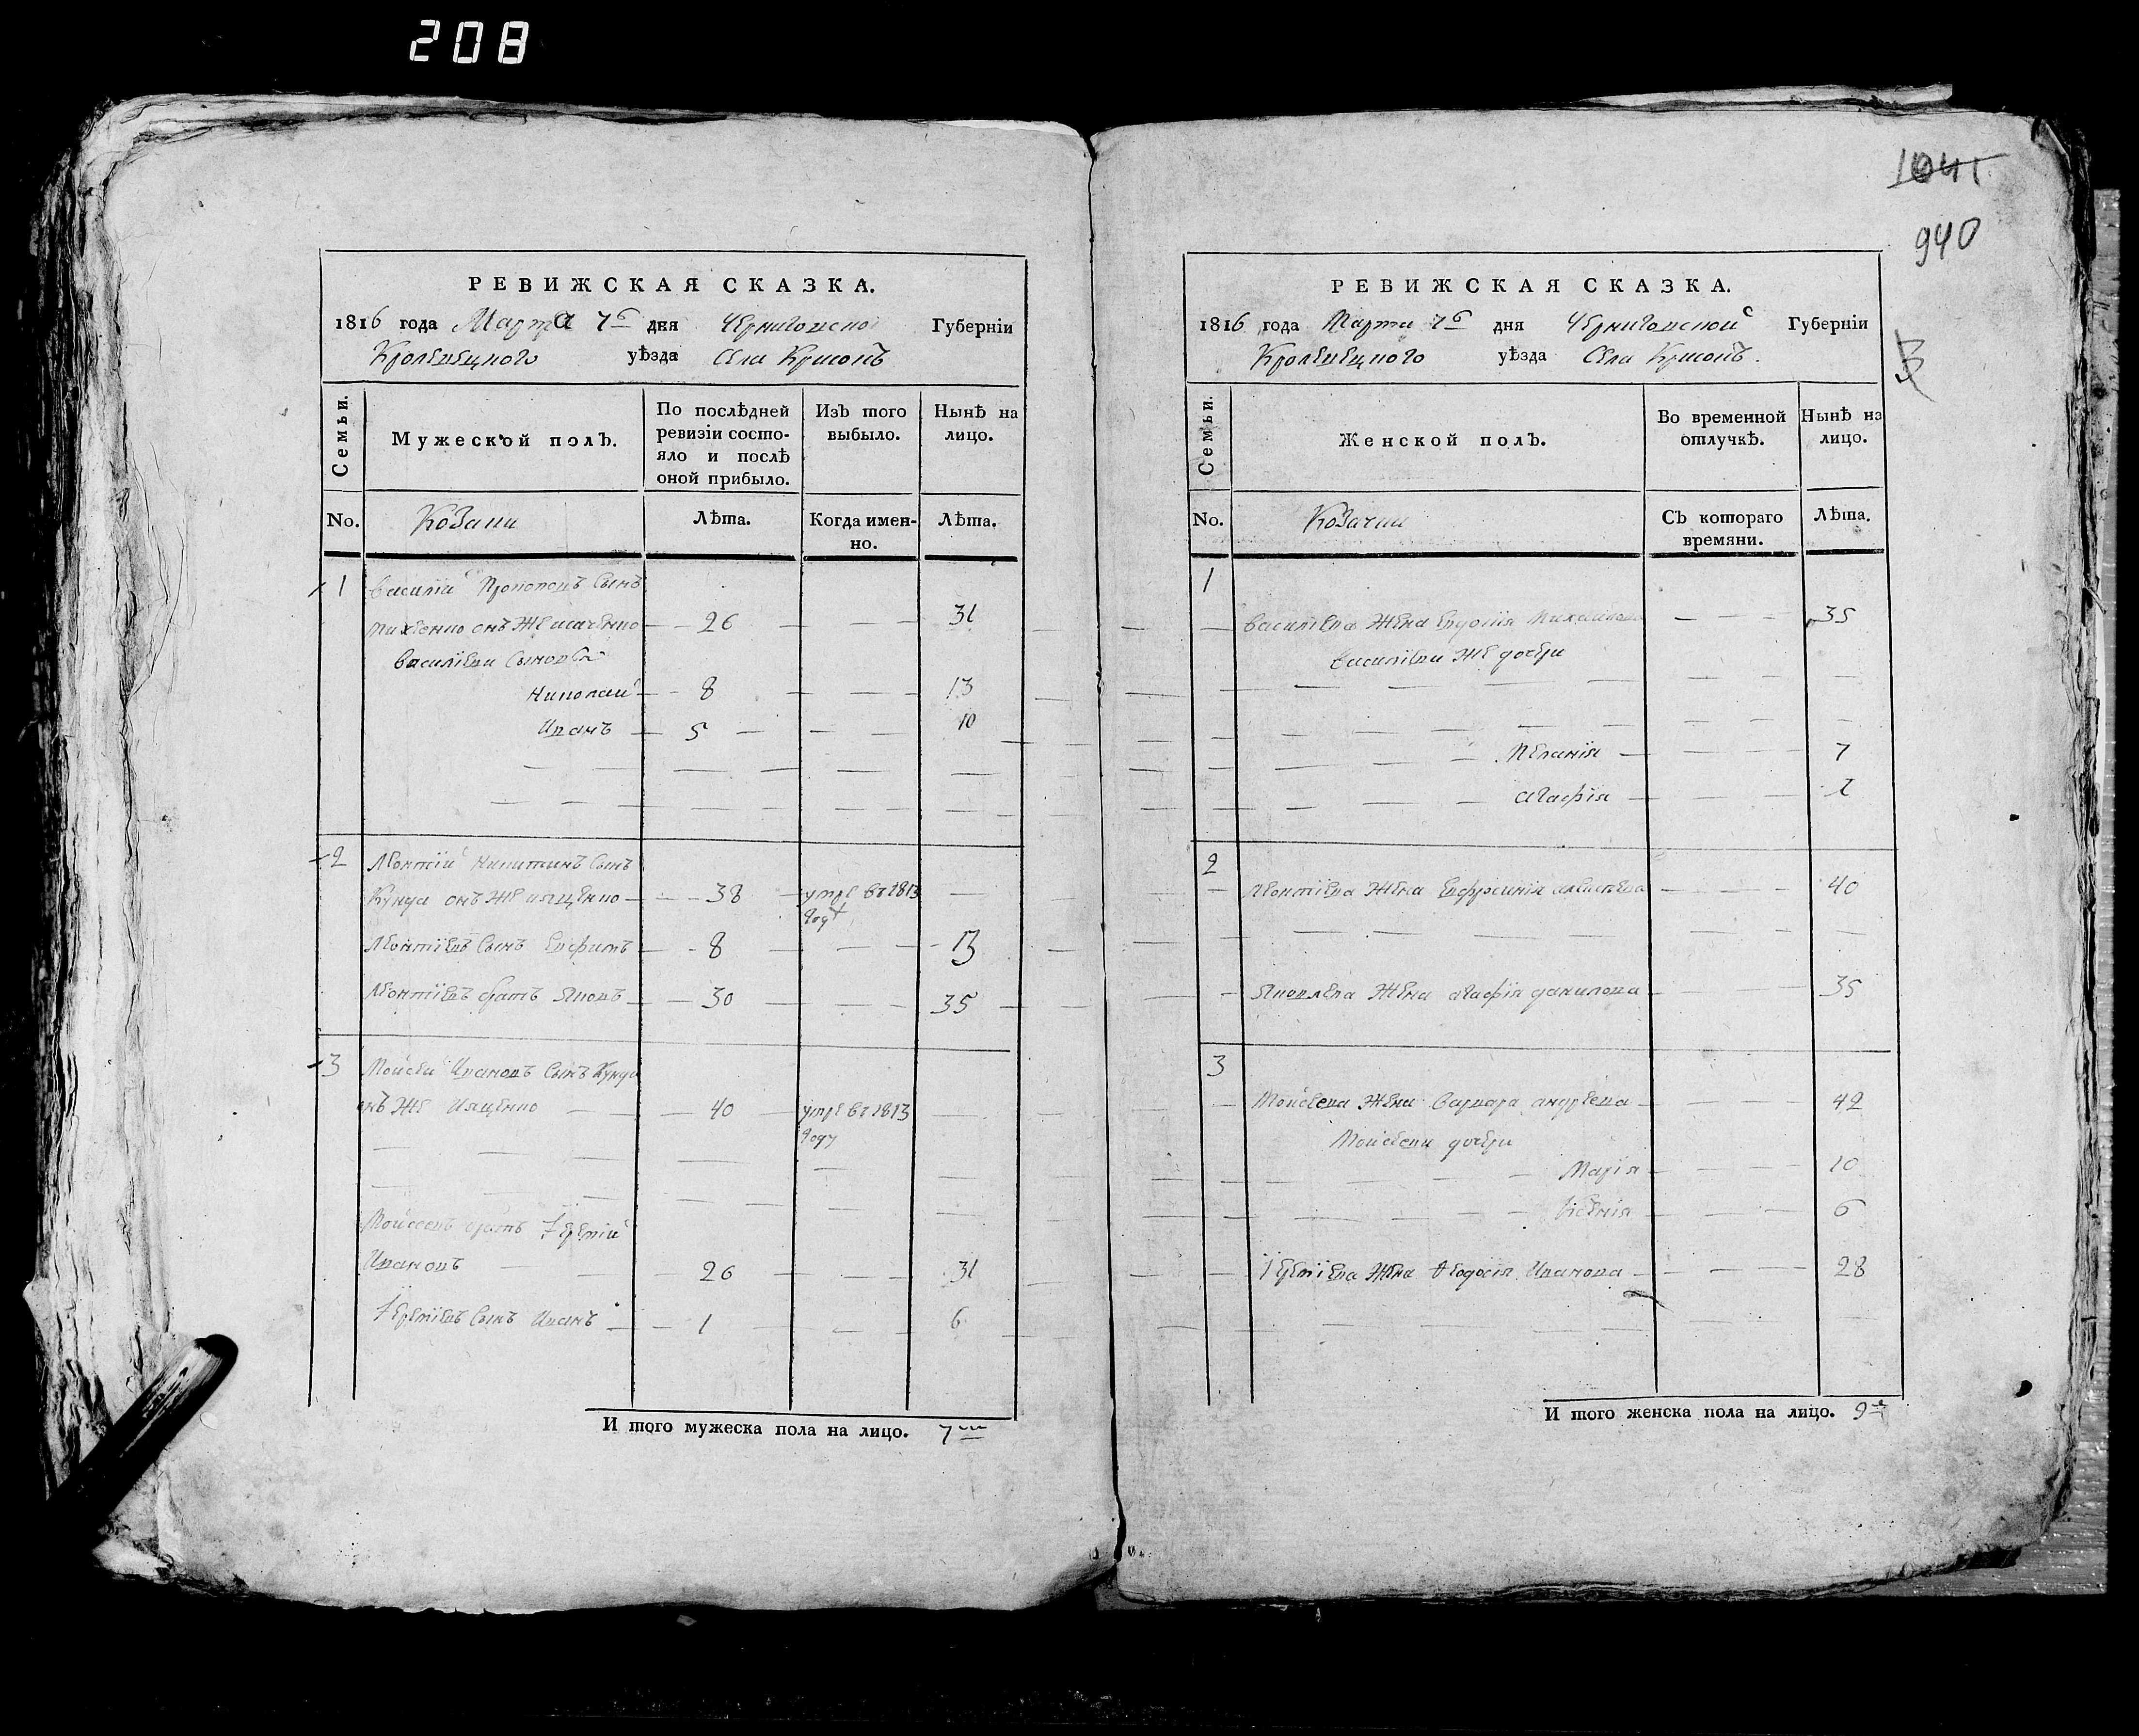 208
1041
940
РЕВИЖСКАЯ СКАЗКА.
1816 года Марта 7го дня Черниговской Губерніи
Кролевецкого уѣзда Села
Семьи.
Мужеской полъ.
По послѣдней ревизіи состо-
яло и послѣ
оной прибыло.
Изъ того
выбыло.
Нынѣ на
лицо.
No. Козаки Лѣта. Когда имен-
но. Лѣта.
1 Василій Прокоповъ Сынъ
онъ же Исаченко 26 31
Василіеви Сыновья
Николай 8 13
Иванъ 5 10
2 Леонтій Никитинъ Сынъ
Кунда онъ же Ященко 38 умре въ 1813
году
Леонтіевъ Сынъ Евфимъ 8 13
Леонтіевъ братъ Яковъ 30 35
3 Мойсей Ивановъ Сынъ Кунда
онъ же Ященко 40 умре въ 1813
году
Мойсеевъ братъ Іеремій
Ивановъ 26 31
Іереміевъ Сынъ Иванъ 1 6
И того мужеска пола на лицо. 7
РЕВИЖСКАЯ СКАЗКА.
1816 года Марта 7го дня Черниговской Губерніи
Кролевецкого уѣзда Села
Семьи.
Женской полъ.
Во временной
отлучкѣ.
Нынѣ на
лицо.
No. Козачки Съ котораго
времяни. Лѣта.
1
Василіева Жена Евдокія Михайлова 35
Василіеви же дочери
Меланія 7
Агафія
2
Леонтіева Жена Евфросинія 40
Яковлева Жена Агафія Данилова 35
3
Мойсеева Жена Варвара Андреева 42
Мойсееви дочери
Марія 10
Ксенія 6
Іереміева Жена Ѳеодосія Иванова 28
И того женска пола на лицо. 9